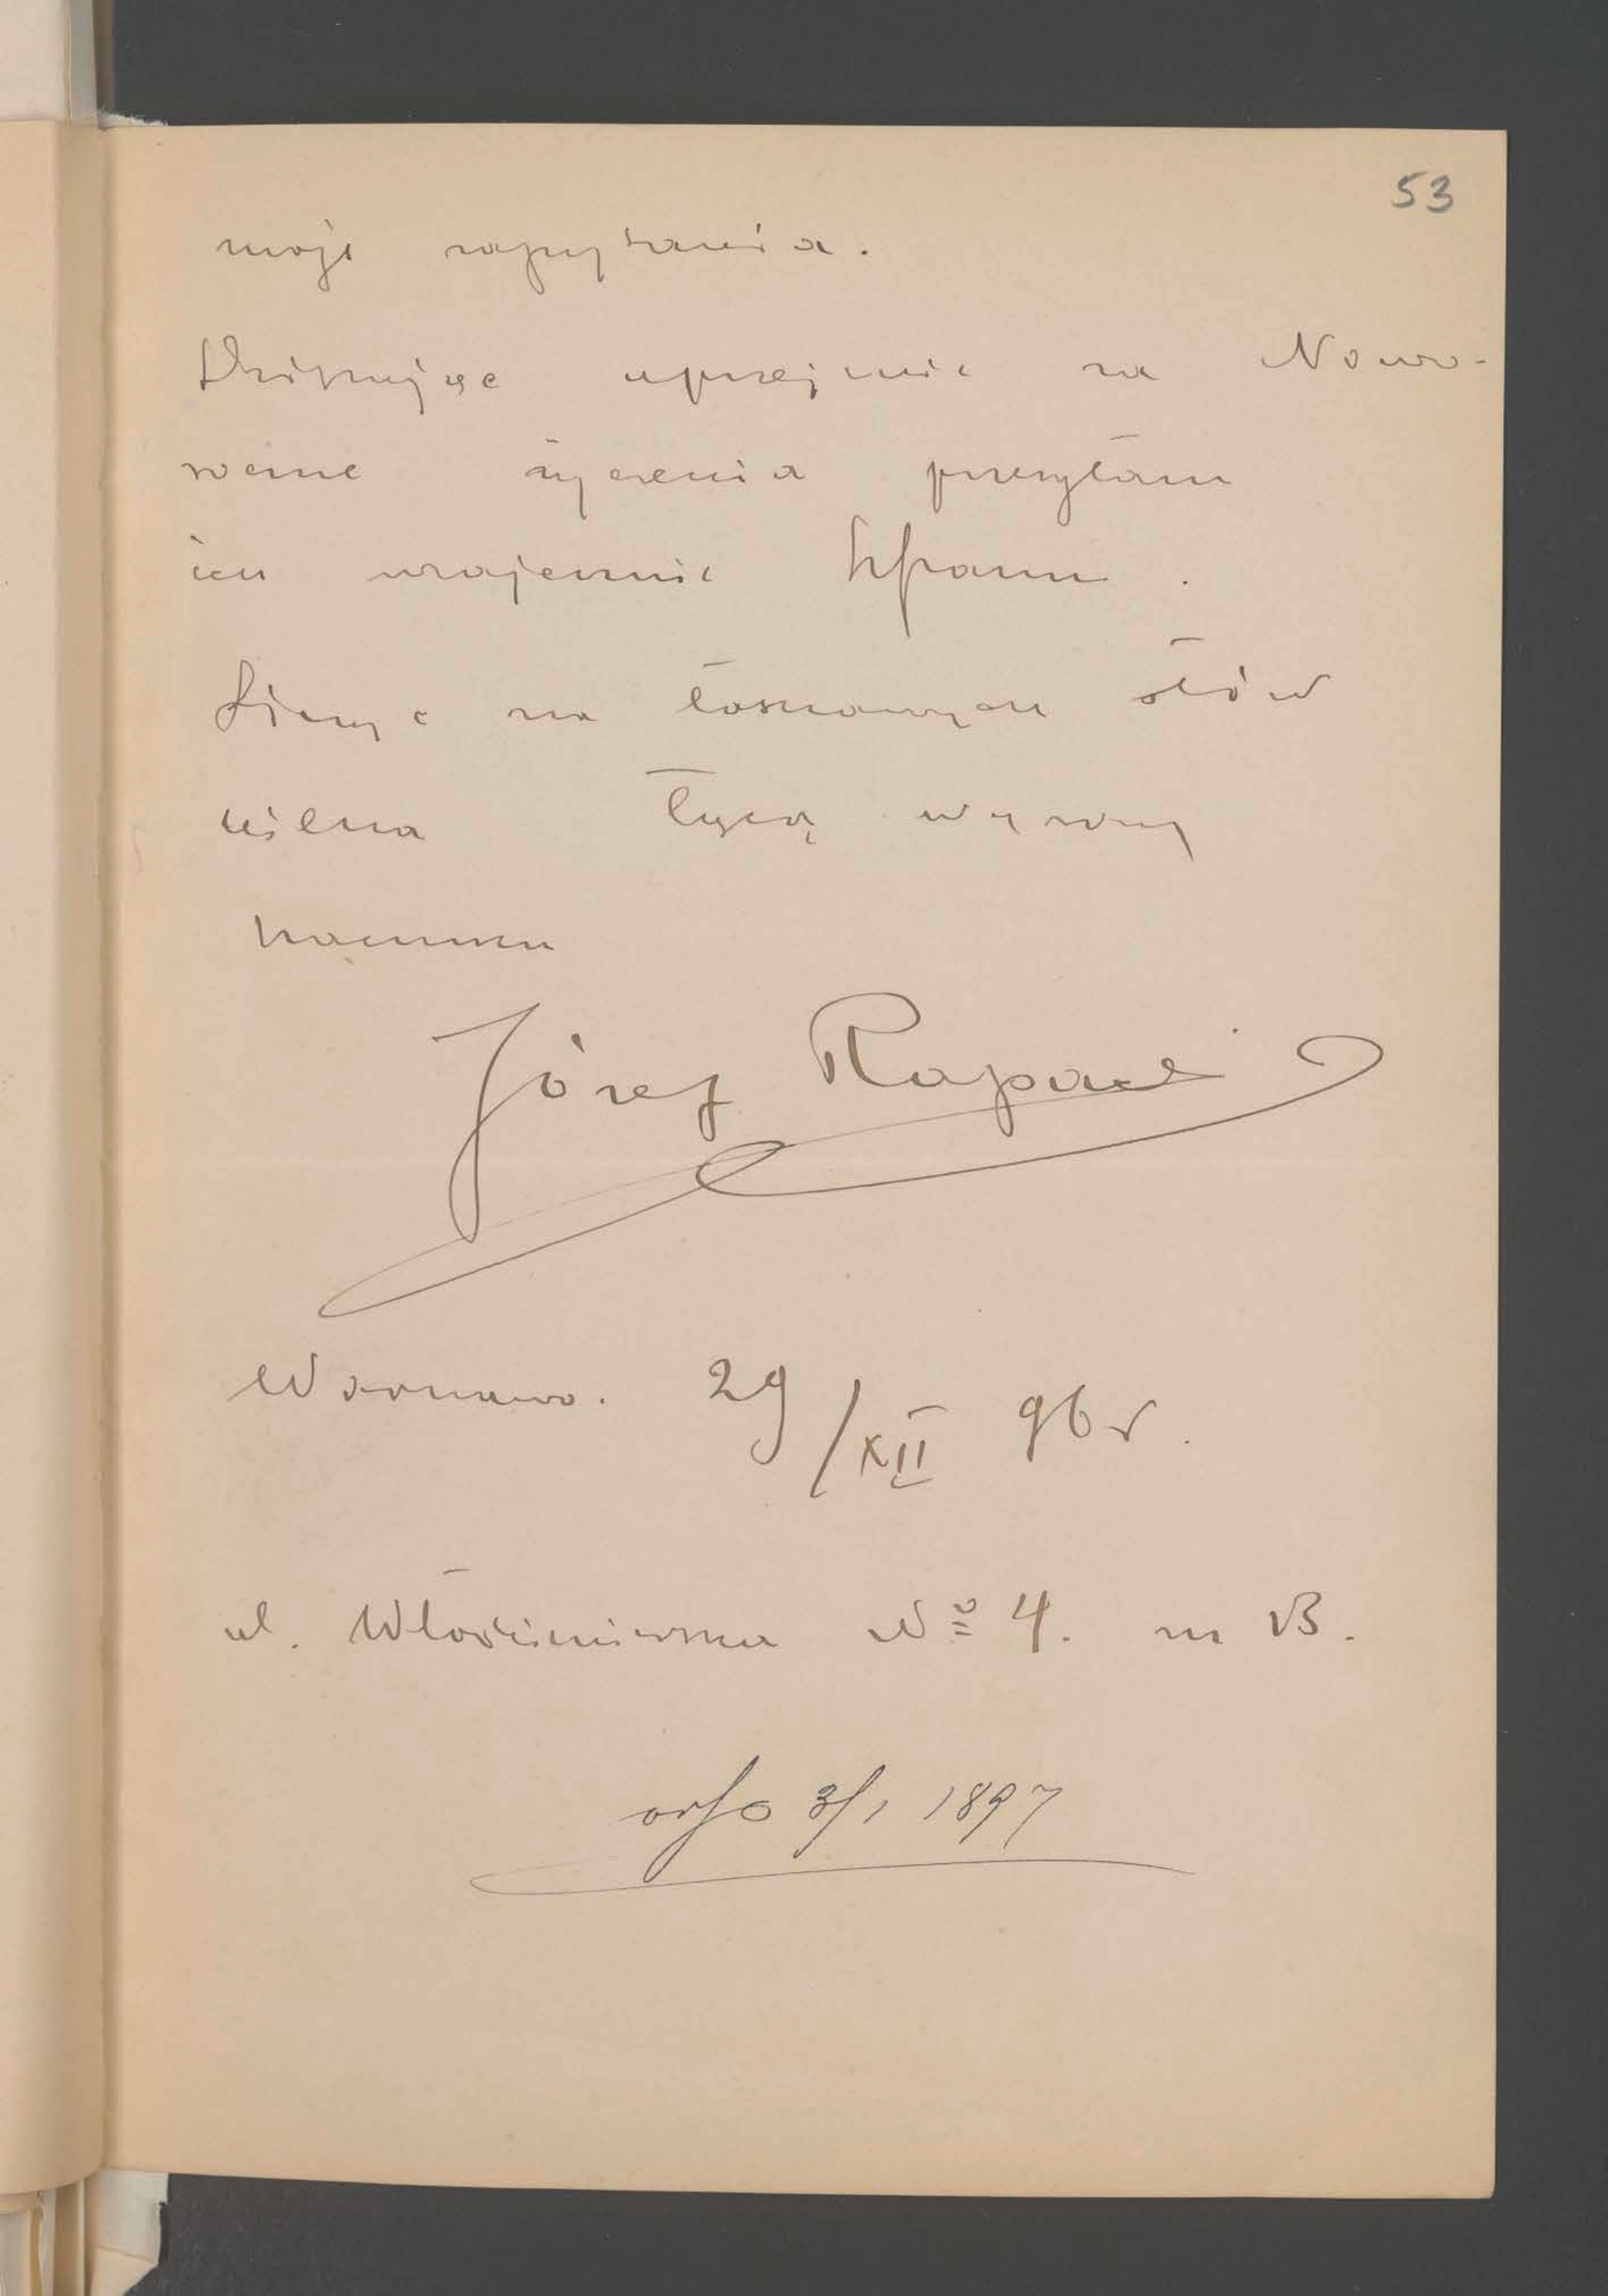 53
moje zapytania.
Dziękując uprzejmie za Nowo-
roczne życzenia przesyłam
ich wzajemnie
Licząc na łaskawych słów
kilka łączę wyrazy
szacunku
Józef Rapacki
Warszawa. 29/XII 96 r.
ul. Włodzimierska No 4. m 13.
3/1 1897